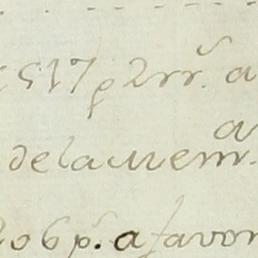 517 p 2 rr.ˢ a
de la Mem.ᵃ
206 p.ˢ a favor